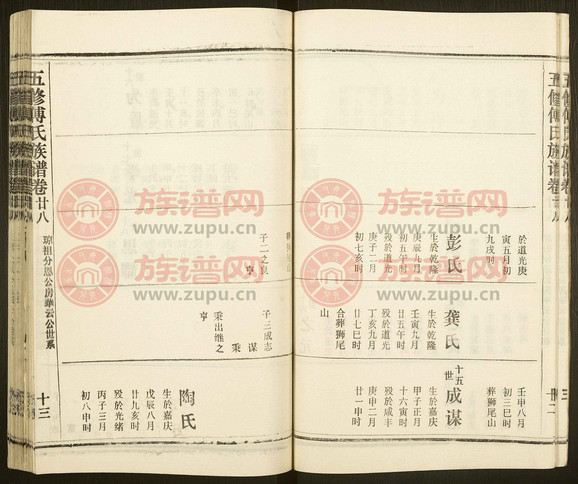 五修傅氏族谱卷廿八
三
十二
於道光庚
寅五月初
九戌时
彭氏
生於乾隆
庚辰九月
初五午时
殁於道光
庚子二月
初七亥时
子二之良
亨
龚氏
生於乾隆
壬寅九月
廿五午时
殁於道光
丁亥九月
廿七巳时
合葬狮尾
山
子三成志
谋
秉
秉出继之
亨
壬申八月
初三巳时
葬狮尾山
十五世
成谋
生於嘉庆
甲子正月
十六寅时
殁於咸丰
庚申二月
廿一申时
陶氏
生於嘉庆
戊辰八月
廿九亥时
殁於光绪
丙子三月
初八申时
五修傅氏族谱卷廿八
琼祖分愿公房华云公世系
十三
族谱网
www.zupu.cn
族谱网
www.zupu.cn
族谱网
www.zupu.cn
族谱网
www.zupu.cn